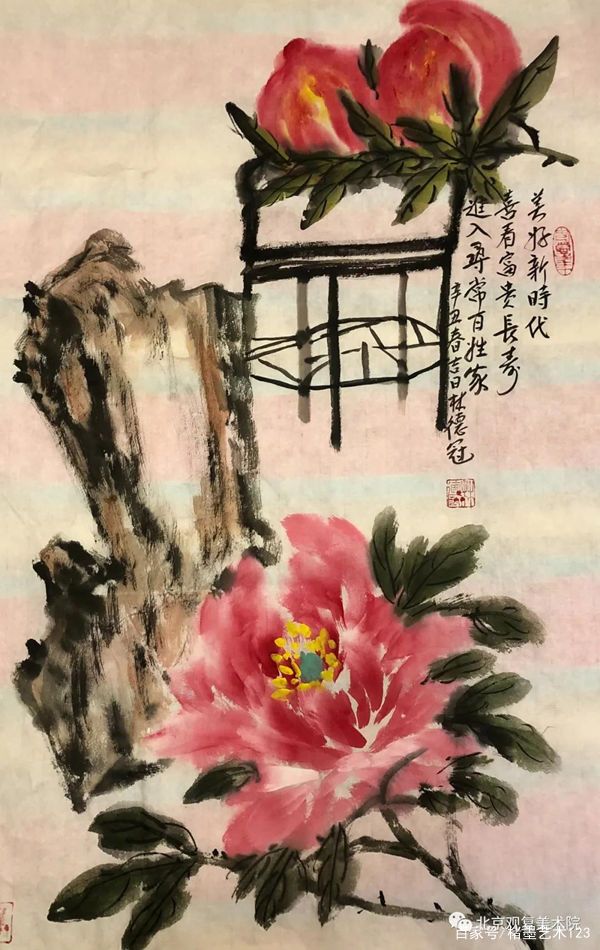 美好新時代
喜看富贵長寿
進入尋常百姓家
辛丑春吉日林德冠
北京观复美术院
百家号/楮墨艺术123